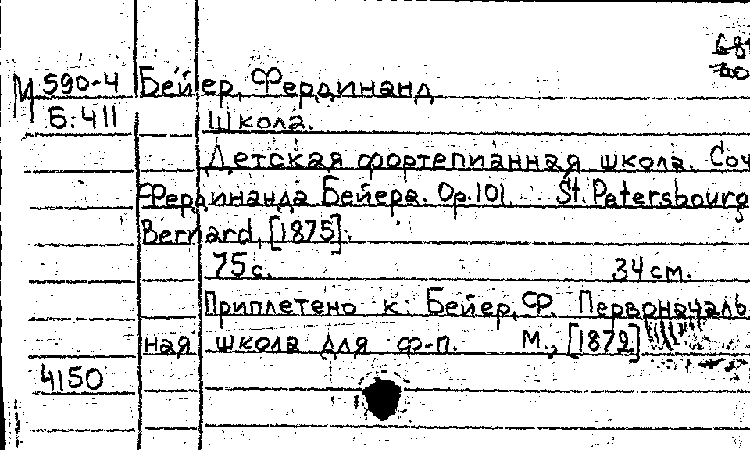 М 590-4 Бейер, Фердинанд
Б. 411 Школа.
Детская фортепианная школа. Соч
Фердинанда Бейера. Op. 101. St. Petersbourg
Bernard, [1875].
75 с. 34 см.
Приплетено к: Бейер, Ф. Первоначаль
ная школа для ф-п. М., [1872]
4150